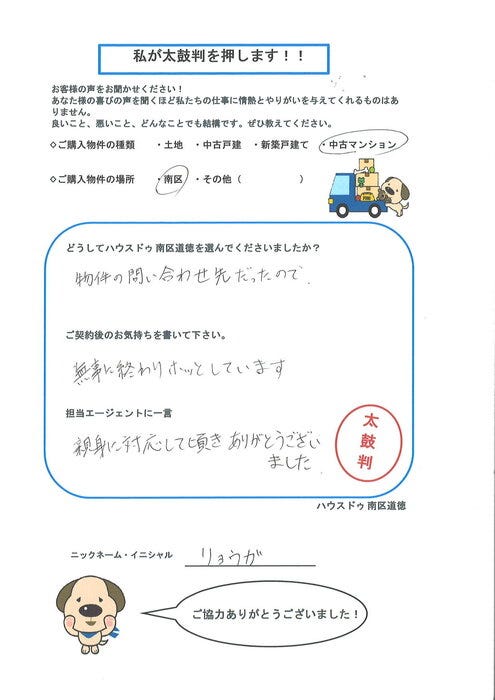 私が太鼓判を押します！！
お客様の声をお聞かせください！
あなた様の喜びの声を聞くほど私たちの仕事に情熱とやりがいを与えてくれるものはあ
りません。
良いこと、悪いこと、どんなことでも結構です。ぜひ教えてください。
◇ご購入物件の種類　・土地　・中古戸建　・新築戸建て　・中古マンション
◇ご購入物件の場所　・南区　・その他（　　　　　）
どうしてハウスドゥ 南区道徳を選んでくださいましたか？
物件の問い合わせ先だったので．
ご契約後のお気持ちを書いて下さい。
無事に終わりホッとしています
担当エージェントに一言
親身に対応して頂き ありがとうござい
ました
太
鼓
判
ハウスドゥ 南区道徳
ニックネーム・イニシャル　リョウガ
ご協力ありがとうございました！